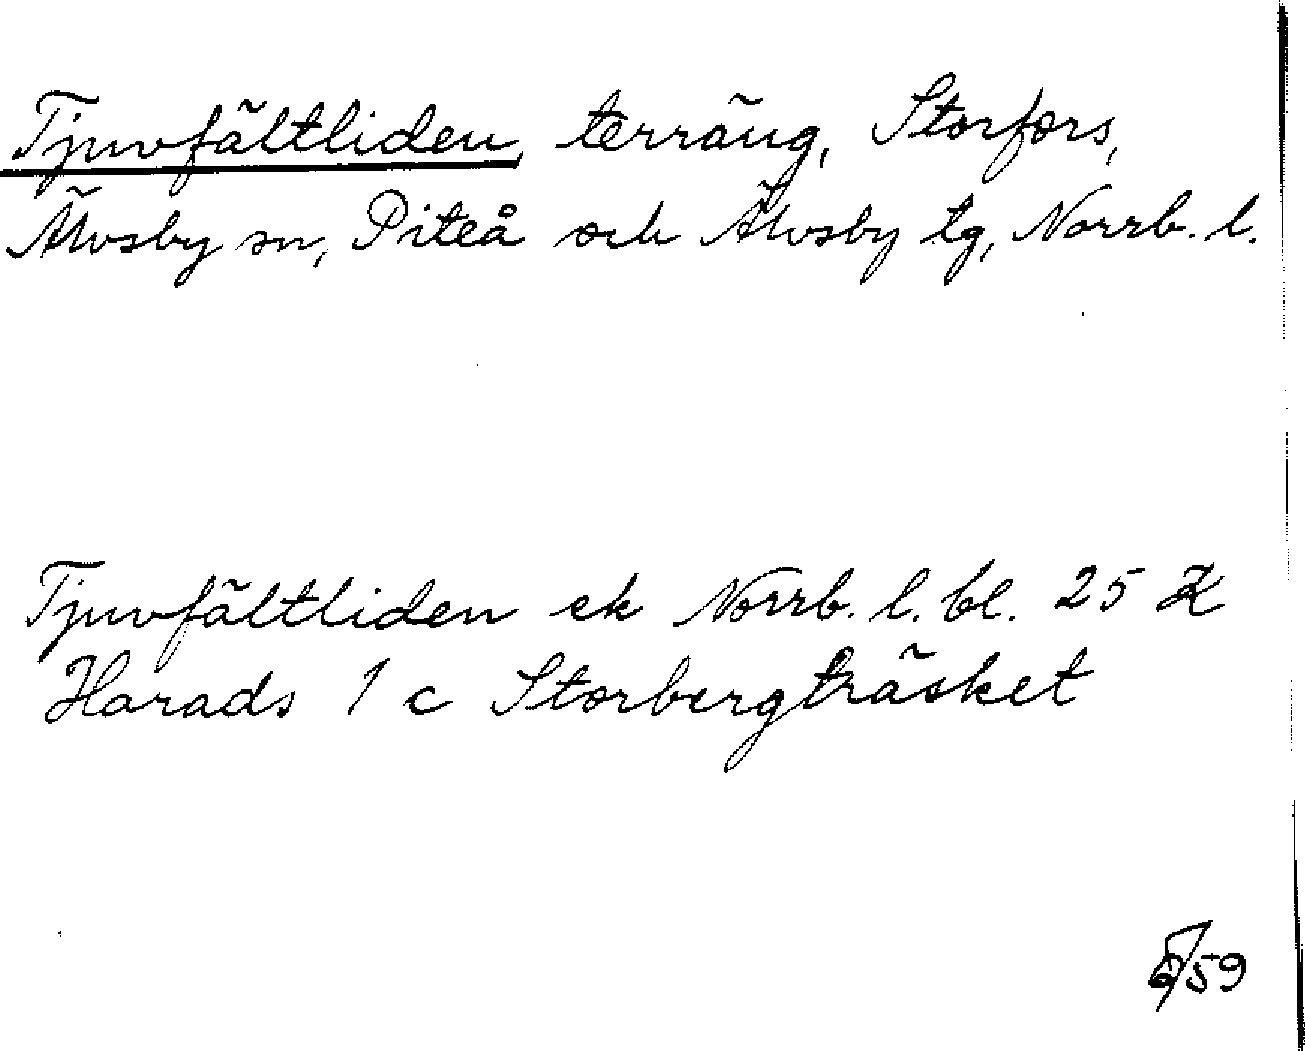 Tjuvfältliden, terräng, Storfors,
Älvsby sn, Piteå och Älvsby tg, Norrb. l.
Tjuvfältliden ek Norrb. l. bl. 25 K
Harads 1 c Storbergträsket
/59